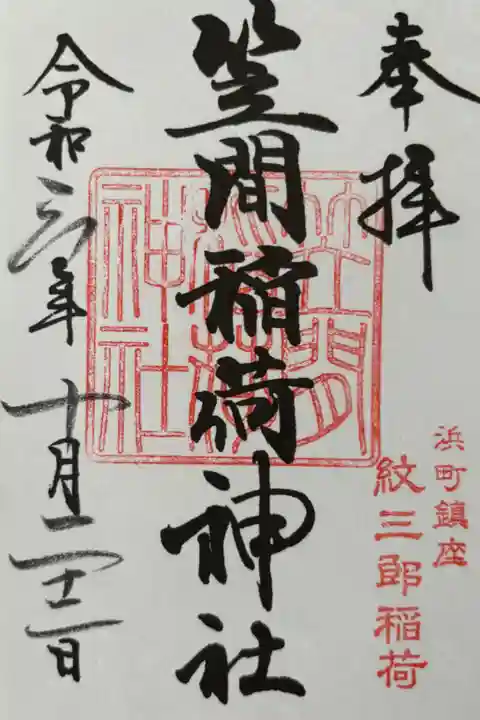 奉拝
浜町鎮座
紋三郎稲荷
笠間稲荷神社
笠間
稲荷
神社
令和三年十月二十二日